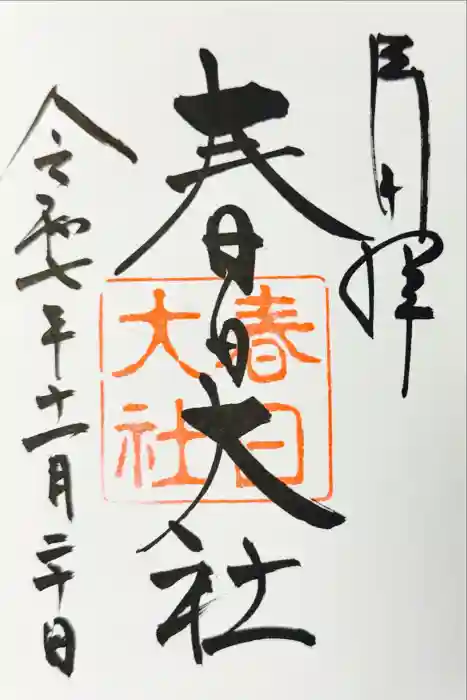 春日大社
春日
大社
令和七年十一月二十日